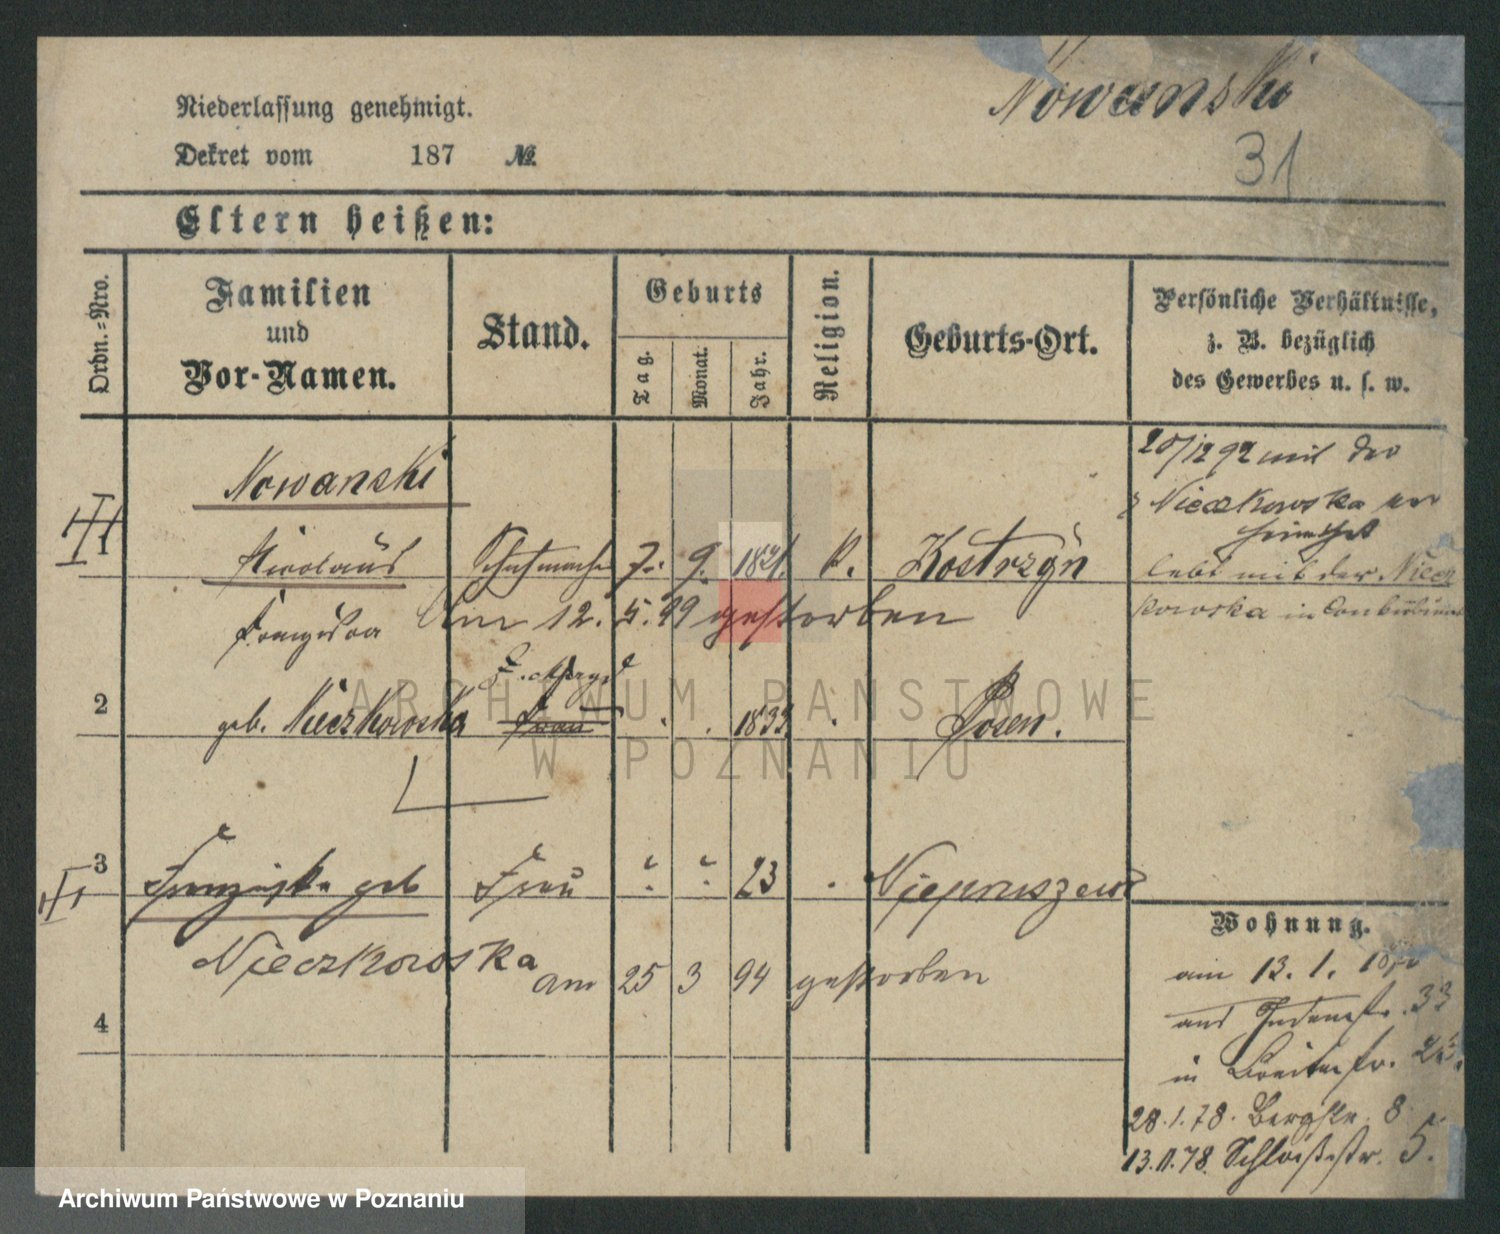 Nowanski
31
Niederlassung genehmigt.
Dekret vom 187 №
Eltern heißen:
Ordn.-Nro.
Familien
und
Vor-Namen.
Stand.
Geburts
Tag.
Monat.
Jahr.
Religion.
Geburts-Ort.
Persönliche Verhältnisse,
z. B. bezüglich
des Gewerbes u. s. w.
20/12 92 mit der
Nieczkowska ver
heirathet
lebt mit der Niecz
kowska in Concubinat
Nowanski
1 Nicolaus Schuhmacher 7. 9. 1821. k. Kostrzyn
Am 12. 5. 99 gestorben
Franziska
2 geb. Nieczkowska Frau 1833. Posen.
3 Franziska geb Frau 23
Nieczkowska am 25 3 94 gestorben
4
Wohnung.
am 13. 1.
aus Judenstr. 33
in Breitestr.
28.1.78. Bergstr. 8
13.11.78. Schloßstr. 5.
ARCHIWUM PAŃSTWOWE
W POZNANIU
Archiwum Państwowe w Poznaniu